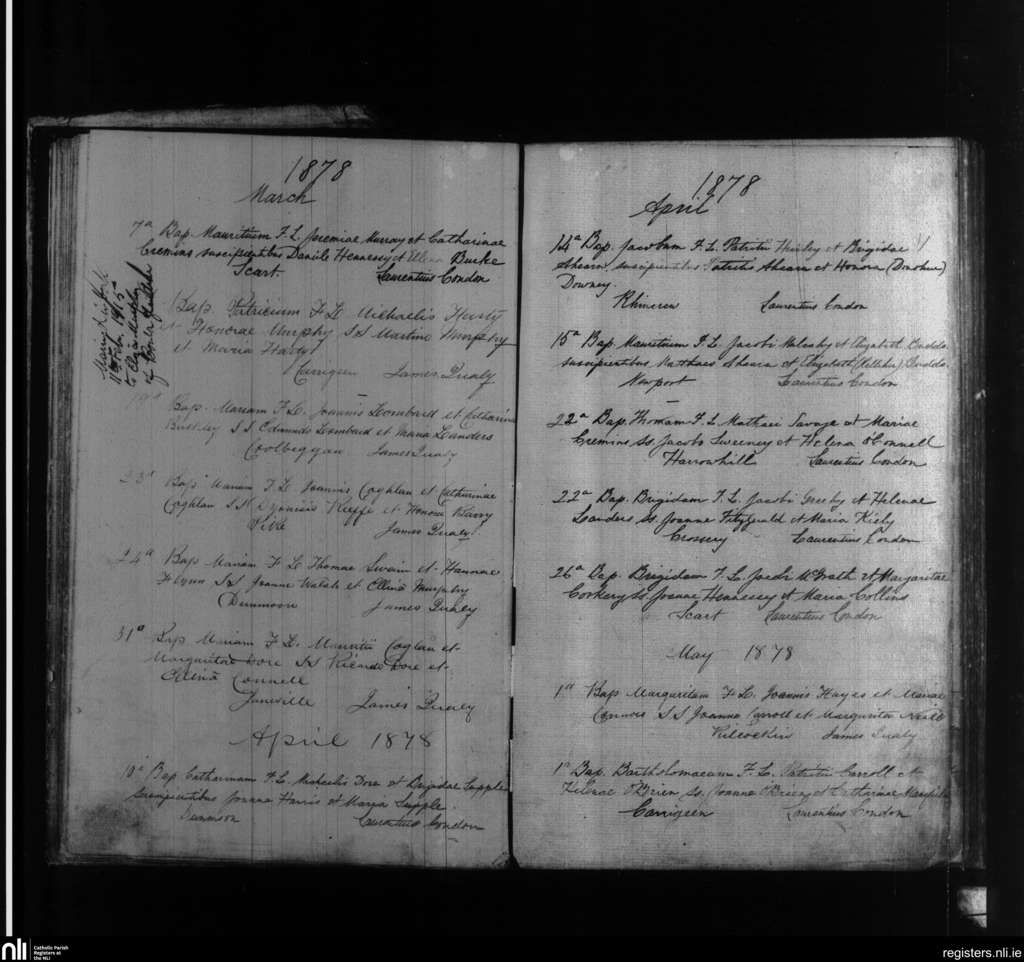 1878
March
7a Bap. Mauritium F. L. Jeremiae Murray et Catharinae
Cremins suscipientibus Daniele Hennessy et Ellena Burke
Scart Laurentius Condon
Bap. Patricium F L Michaelis Hasty
et Honorae Murphy SS Martino Murphy
et Maria Hasty
Carrigeen James Qualy
Bap. Mariam F. L. Joannis Lombard et Catharina
SS Edmundo Lombard et Maria Landers
Coolbeggan James Qualy
23a Bap Mariam F. L. Joannis Coghlan et Catharinae
Coghlan SS Dyonisio Keiffe et Honora Barry
James Qualy
24a Bap Mariam F L Thomae Swain et Hannorae
Flynn SS Joanne Walsh et Ellena Murphy
Dunmoon James Qualy
31a Bap Mariam F L. Mauritii Coglan et
Margaritae Dore SS Ricardo Dore et
Ellena Connell
Janeville James Qualy
April 1878
10a Bap Catharinam F. L. Michaelis Dore et Brigidae Supple
suscipientibus Joanne Harris et Maria Supple
Laurentius Condon
1878
April
14a Bap. Jacobum F. L. Patritii Hurley et Brigidae
Ahearn suscipientibus Patritio Ahearn et Honora (Donohue)
Downey.
Rhincrew Laurentius Condon
15a Bap. Mauritium F. L. Jacobi et Elizabeth
suscipientibus Mathaeo Ahearn et Elizabeth
Newport Laurentius Condon
22a Bap. Thomam F. L. Mathaei Savage et Mariae
Cremins SS. Jacobo Sweeney et Helena O'Connell
Harrowhill Laurentius Condon
22a Bap. Brigidam F. L. Jacobi Geeby et Helenae
Landers SS. Joanne Fitzgerald et Maria Kiely
Laurentius Condon
26a Bap. Brigidam F. L. McGrath et Margaritae
Corkery SS. Joanne Hennessey et Maria Collins
Scart Laurentius Condon
May 1878
1a Bap Margaritam F L. Joannis Hayes et Mariae
Connors SS Joanne Carroll et Margarita Neill
Kilcockin James Qualy
1a Bap. Bartholomaeum F. L. Patritii Carroll et
O'Brien SS. Joanne O'Brien et Catharina
Carrigeen Laurentius Condon
nli Catholic Parish
Registers at
the NLI
registers.nli.ie